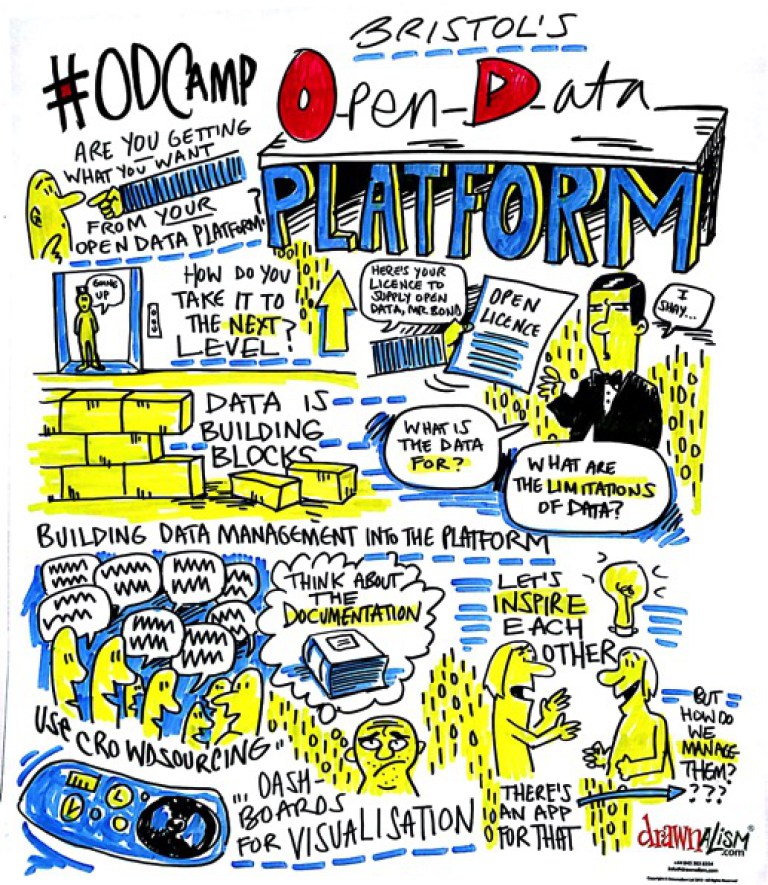 BRISTOL'S
#ODCAMP
Open-Data
PLATFORM
ARE YOU GETTING
WHAT YOU WANT
FROM YOUR
OPEN DATA PLATFORM?
GOING
UP
HOW DO YOU
TAKE IT TO
THE NEXT
LEVEL?
HERE'S YOUR
LICENCE TO
SUPPLY OPEN
DATA, MR BOND
OPEN
LICENCE
I
SHAY...
DATA IS
BUILDING
BLOCKS
WHAT IS
THE DATA
FOR?
WHAT ARE
THE LIMITATIONS
OF DATA?
BUILDING DATA MANAGEMENT INTO THE PLATFORM
THINK ABOUT
THE
DOCUMENTATION
LET'S
INSPIRE
EACH
OTHER
USE CROWDSOURCING
BUT
HOW DO
WE
MANAGE
THEM?
???
... DASH-
BOARDS
FOR VISUALISATION
THERE'S
AN APP
FOR THAT
drawnALISM
.com